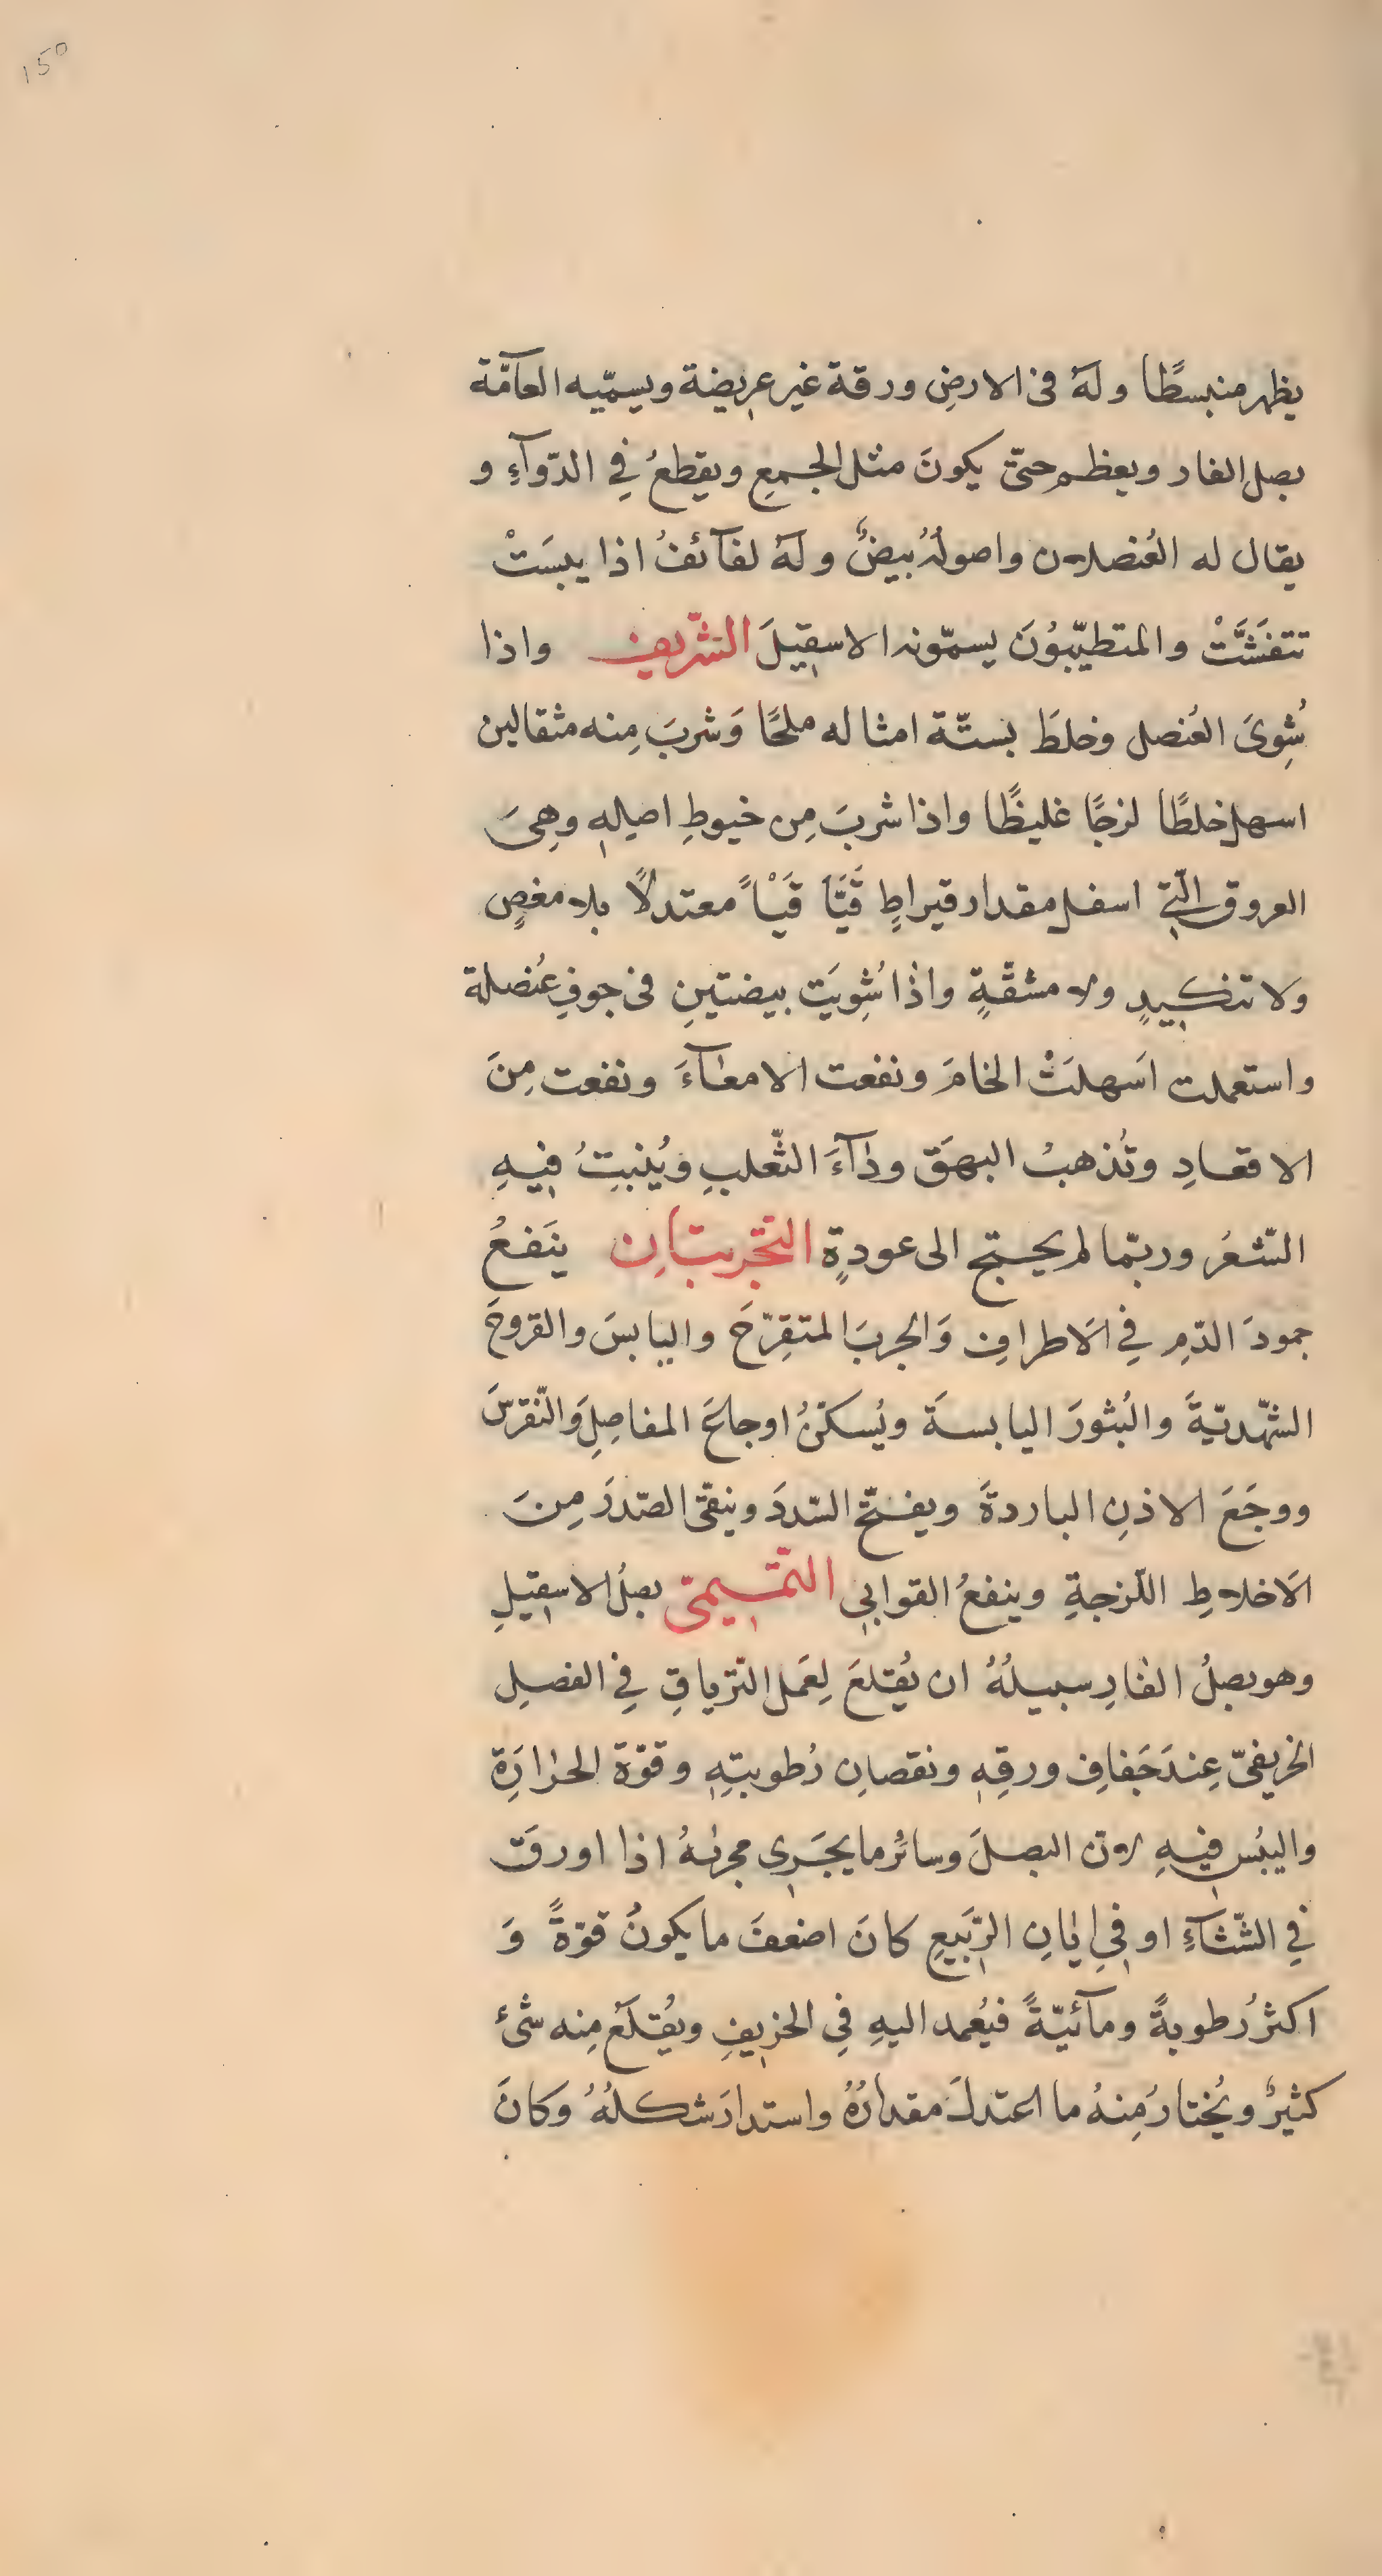 ١٥٥
يظهر منبسطًا ولهُ فى الارضِ ورقة غير عريضة ويسمّيه العآمّة
بصل الفار ويعظم حتىّ يكونَ مثل الجمعِ ويقطعُ فِي الدّوآءِ و
يقال له العُنصلان واصولُهُ بيضٌ ولَهُ لفآئفُ اذا يبسَتْ
تتفَشَّتْ والمتطيّبوُنَ يسمّونه الاسقِيلَ الشّريف واذا
شُوِىَ العُنصل وخلطَ بستّة امثاله ملحًا وَشربَ مِنه مثقالين
اسهل خلطًا لزجًا غليظًا واذا شربَ مِن خيوطِ اصلِهِ وهِىَ
العروق الّتِى اسفل مقدار قيراطٍ قَيَّأ قَيْأً معتدلًا بلا مغصٍ
ولا تنكيدٍ ولا مشقّةٍ واذا شُوِيَت بيضتينِ فى جوفِ عُنصلة
واستعملت اَسهلَتْ الخامَ ونفعت الامعآءَ ونفعت مِنَ
الاقعادِ وتُذهبُ البهَقَ ودآءَ الثّعلبِ ويُنبتِ فيهِ
الشّعرُ وربّما لم يحتج الى عودةٍ التّجربتانِ ينَفعُ
جمودَ الدّمِ فِي الاَطرافِ وَالجربَ المتقرّحَ واليابسَ والقروحَ
الشّهديّةَ والبُثورَ اليابسةَ ويُسكنُ اوجاعَ المفاصِلِ وَالنّقرسَ
ووجَعَ الاذنِ الباردةَ ويفتّح السّددَ وينقّى الصّدرَ مِنَ
الاَخلاطِ اللّزجةِ وينفعُ القوابى التّميمىّ بصلُ الاسقيلِ
وهو بصلُ الفارِ سبيلُهُ ان يُقتلعَ لِعَمل التّرياقِ فِي الفصلِ
الخريفىّ عِندَ جَفافِ ورقِهِ ونقصانِ رُطوبتِهِ وقوّة الحرارَةِ
واليبُسِ فيهِ لانّ البصلَ وسائرُ ما يجَرِى مجراهُ اذا اورقَت
فِي الشّتآءِ او فِي ايانِ الرّبَيعِ كانَ اضعفَ ما يكونُ قوّةً وَ
اكثرُ رُطوبةً ومآئيّةً فيُعمد اليهِ فِي الخريفِ ويُقتلَعُ مِنه شئ
كثيرٌ ويُختارُ مِنهُ ما اعتدلَ مقدارُهُ واستدارَ شكلُهُ وكانَ